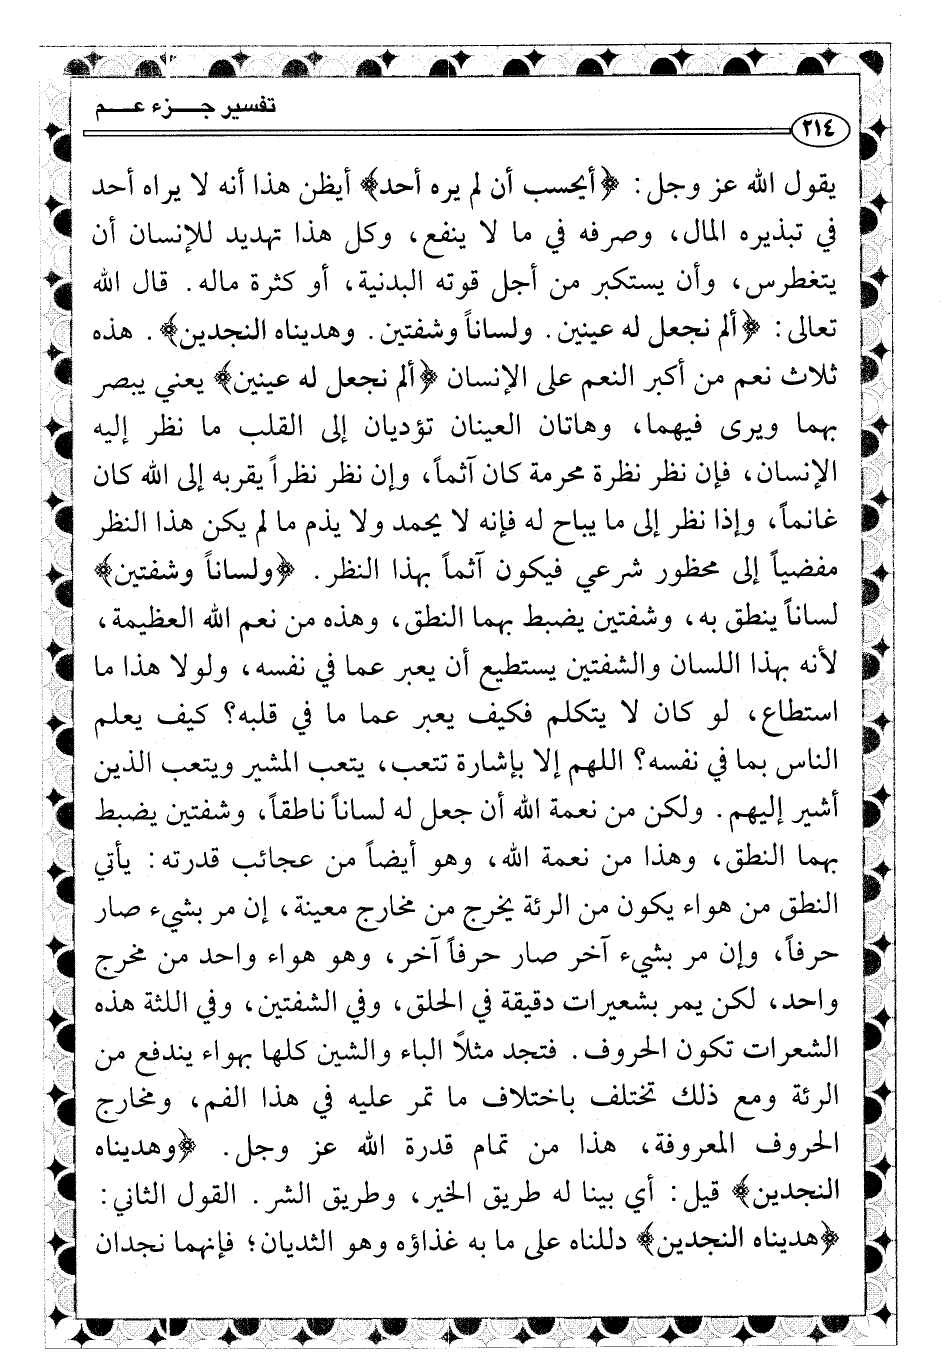 تفسير جـــزء عـــم
٢١٤
يقول الله عز وجل: ﴿أيحسب أن لم يره أحد﴾ أيظن هذا أنه لا يراه أحد
في تبذيره المال، وصرفه في ما لا ينفع، وكل هذا تهديد للإنسان أن
يتغطرس، وأن يستكبر من أجل قوته البدنية، أو كثرة ماله. قال الله
تعالى: ﴿ألم نجعل له عينين. ولساناً وشفتين. وهديناه النجدين﴾. هذه
ثلاث نعم من أكبر النعم على الإنسان ﴿ألم نجعل له عينين﴾ يعني يبصر
بهما ويرى فيهما، وهاتان العينان تؤديان إلى القلب ما نظر إليه
الإنسان، فإن نظر نظرة محرمة كان آثماً، وإن نظر نظراً يقربه إلى الله كان
غانماً، وإذا نظر إلى ما يباح له فإنه لا يحمد ولا يذم ما لم يكن هذا النظر
مفضياً إلى محظور شرعي فيكون آثماً بهذا النظر. ﴿ولساناً وشفتين﴾
لساناً ينطق به، وشفتين يضبط بهما النطق، وهذه من نعم الله العظيمة،
لأنه بهذا اللسان والشفتين يستطيع أن يعبر عما في نفسه، ولولا هذا ما
استطاع، لو كان لا يتكلم فكيف يعبر عما ما في قلبه؟ كيف يعلم
الناس بما في نفسه؟ اللهم إلا بإشارة تتعب، يتعب المشير ويتعب الذين
أشير إليهم. ولكن من نعمة الله أن جعل له لساناً ناطقاً، وشفتين يضبط
بهما النطق، وهذا من نعمة الله، وهو أيضاً من عجائب قدرته: يأتي
النطق من هواء يكون من الرئة يخرج من مخارج معينة، إن مر بشيء صار
حرفاً، وإن مر بشيء آخر صار حرفاً آخر، وهو هواء واحد من مخرج
واحد، لكن يمر بشعيرات دقيقة في الحلق، وفي الشفتين، وفي اللثة هذه
الشعرات تكون الحروف. فتجد مثلاً الباء والشين كلها بهواء يندفع من
الرئة ومع ذلك تختلف باختلاف ما تمر عليه في هذا الفم، ومخارج
الحروف المعروفة، هذا من تمام قدرة الله عز وجل. ﴿وهديناه
النجدين﴾ قيل: أي بينا له طريق الخير، وطريق الشر. القول الثاني:
﴿هديناه النجدين﴾ دللناه على ما به غذاؤه وهو الثديان؛ فإنهما نجدان